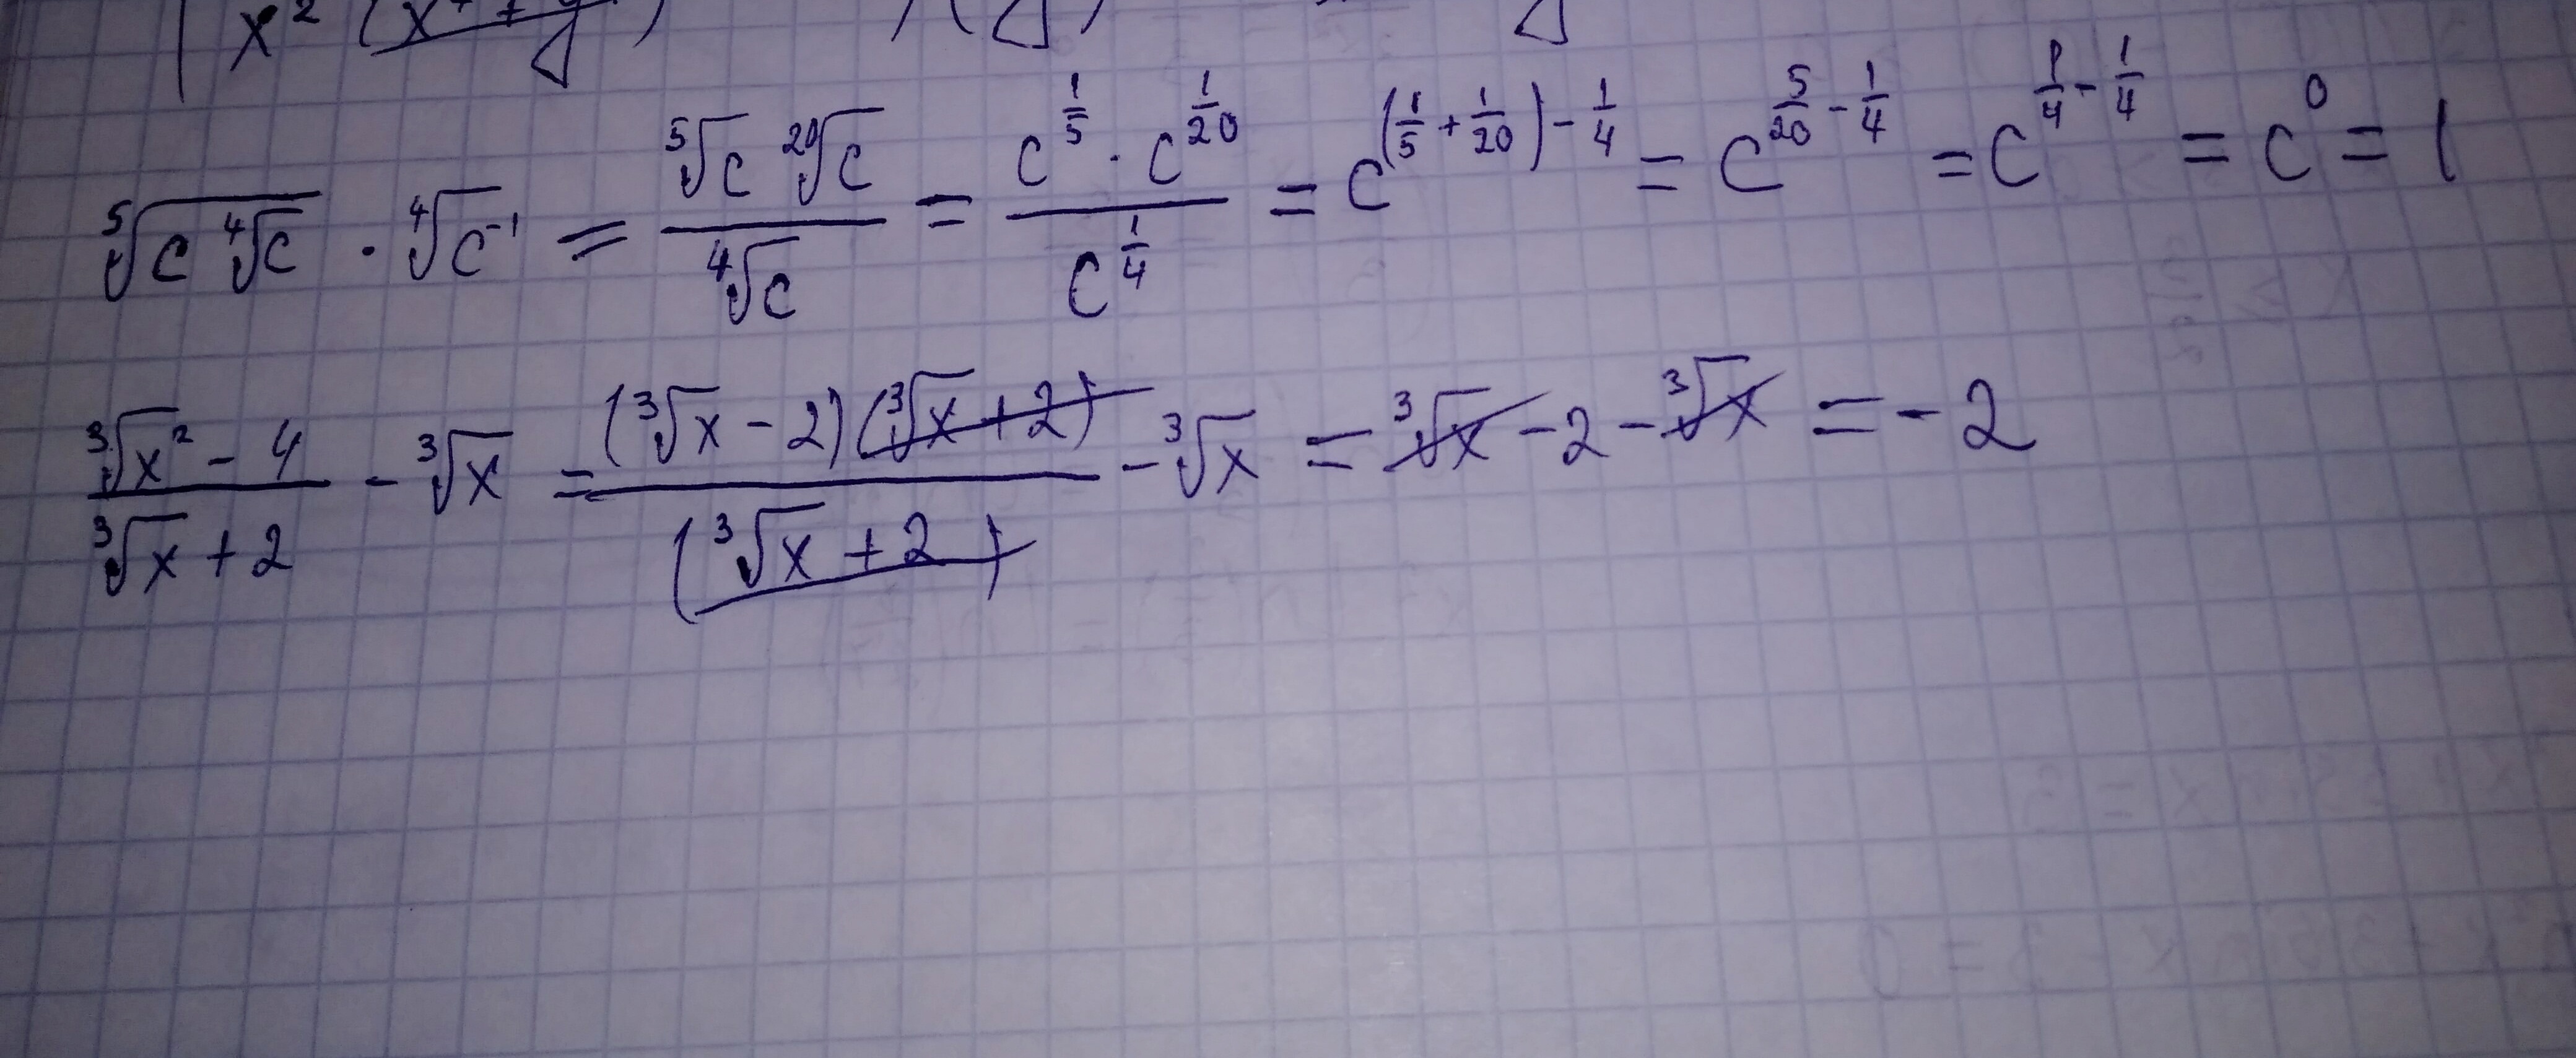 x² (x
⁵√(c ⁴√c) · ⁴√(c⁻¹) = (⁵√c ²⁰√c)/(⁴√c) = (c^(1/5) · c^(1/20))/(c^(1/4)) = c^((1/5 + 1/20) - 1/4) = c^(5/20 - 1/4) = c^(1/4 - 1/4) = c⁰ = 1
(³√x² - 4)/(³√x + 2) - ³√x = ((³√x - 2)(³√x + 2))/((³√x + 2)) - ³√x = ³√x - 2 - ³√x = - 2